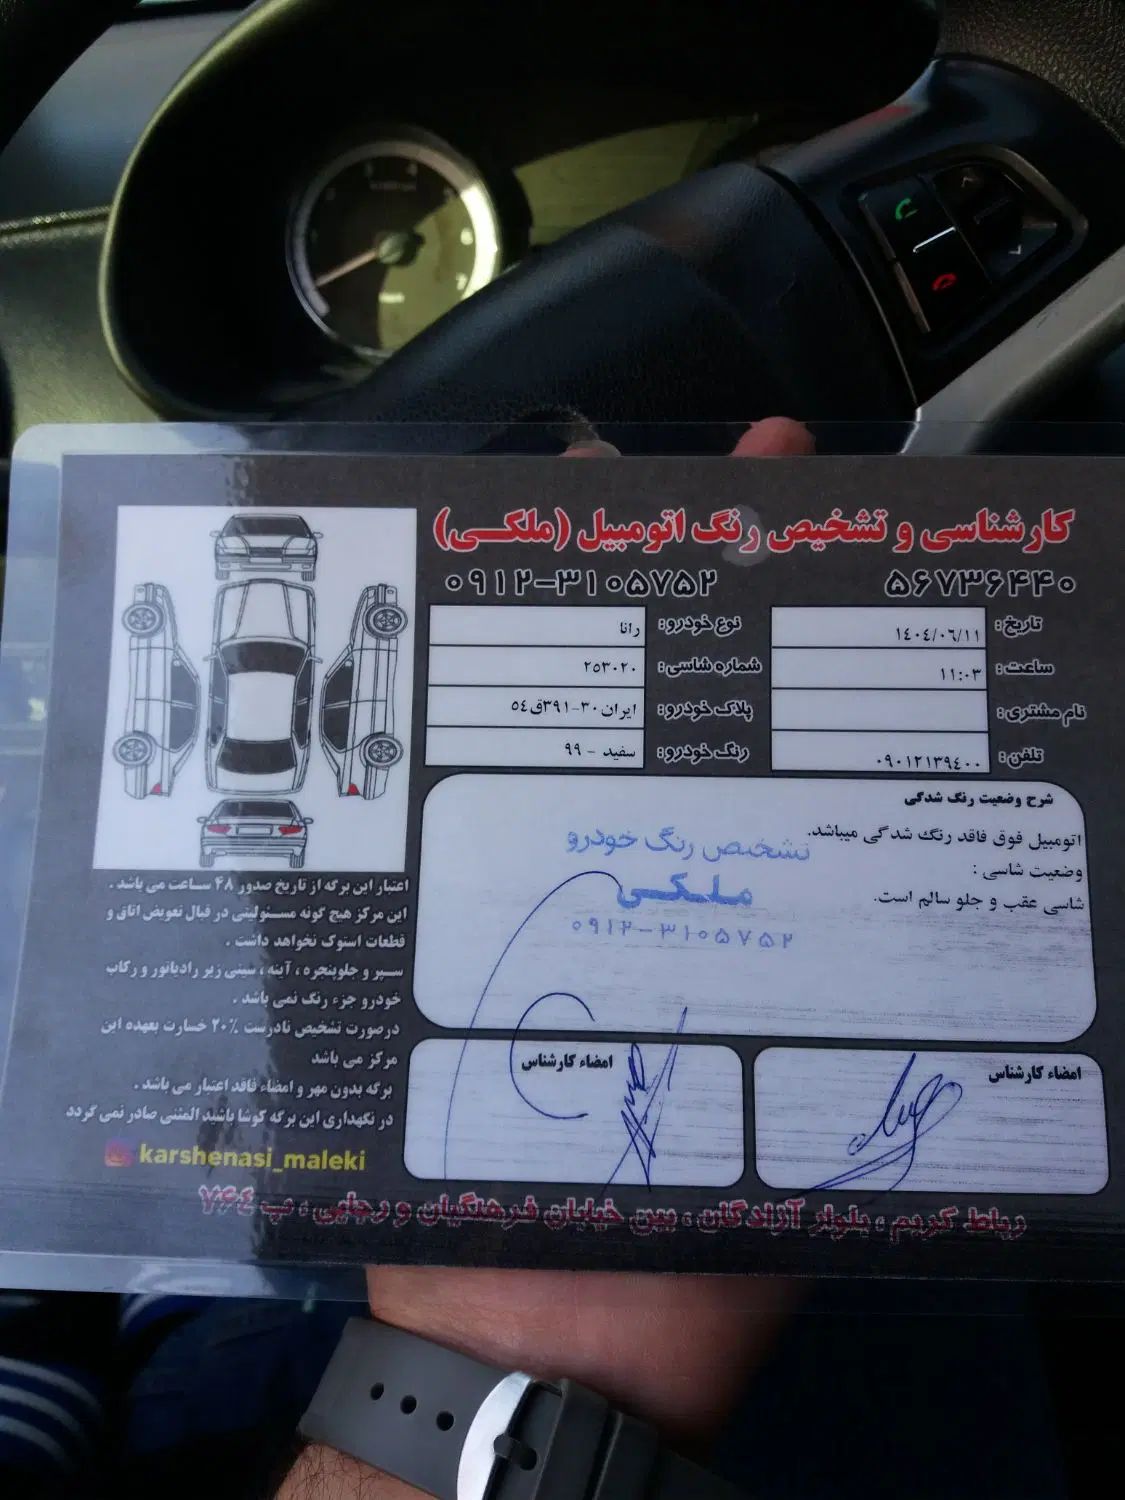 کارشناسی و تشخیص رنگ اتومبیل (ملکی)
۵۶۷۳۶۴۴۰
۰۹۱۲-۳۱۰۵۷۵۲
تاریخ: ۱٤۰٤/۰٦/۱۱
ساعت: ۱۱:۰۳
نام مشتری:
تلفن: ۰۹۰۱۲۱۳۹٤۰۰
نوع خودرو: رانا
شماره شاسی: ۲۵۳۰۲۰
پلاک خودرو: ایران۳۰-۳۹۱ق۵٤
رنگ خودرو: سفید - ۹۹
شرح وضعیت رنگ شدگی
اتومبیل فوق فاقد رنگ شدگی میباشد.
وضعیت شاسی :
شاسی عقب و جلو سالم است.
تشخیص رنگ خودرو
ملکی
۰۹۱۲-۳۱۰۵۷۵۲
امضاء کارشناس
امضاء کارشناس
اعتبار این برگه از تاریخ صدور ۴۸ ساعت می باشد .
این مرکز هیچ گونه مسئولیتی در قبال تعویض اتاق و
قطعات استوک نخواهد داشت .
سپر و جلوپنجره ، آینه ، سینی زیر رادیاتور و رکاب
خودرو جزء رنگ نمی باشد .
درصورت تشخیص نادرست ۲۰٪ خسارت بعهده این
مرکز می باشد
برگه بدون مهر و امضاء فاقد اعتبار می باشد .
در نگهداری این برگه کوشا باشید المثنی صادر نمی گردد
karshenasi_maleki
رباط کریم ، بلوار آزادگان ، بین خیابان فرهنگیان و رجایی ، پ ۷۶۴